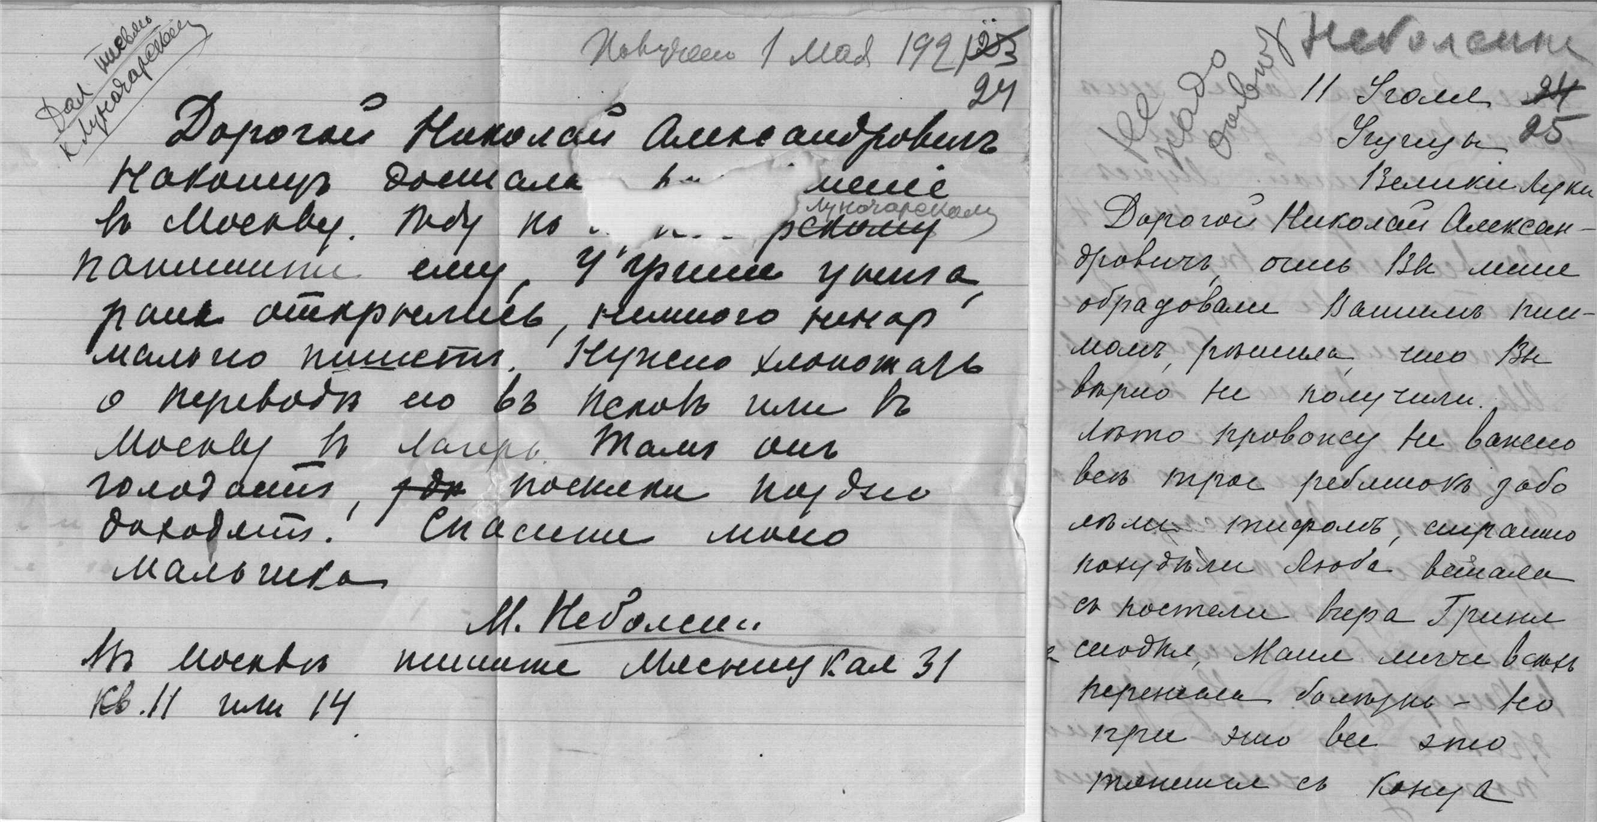 Дал письмо
к Луначарскому
Получено 1 Мая 1921
23
24
Дорогой Николай Александровичъ
Наконецъ достала
въ Москву. Иду къ рскому
Луначарскому
напишите ему, У Гриши цынга,
раны открылись, немного ненор
мально пишетъ. Нужно хлопотать
о переводѣ его въ Псковъ или въ
Москву въ лагерь. Тамъ онъ
голодаетъ, посылки поздно
доходятъ. Спасите моего
мальчика
М. Неболсин
Въ Москвѣ пишите Мясницкая 31
кв. 11 или 14
Не надо
Неболсина
11 Іюля 24
25
Великіе Луки
Дорогой Николай Алексан-
дровичъ, очень Вы меня
обрадовали Вашимъ пись-
момъ, рѣшила, что Вы
вѣрно не получили.
Лѣто провожу не важно
всѣ трое ребятокъ забо
лѣли тифомъ, страшно
похудѣли Люба встала
съ постели вчера Гриня
сегодня, Маня легче всѣхъ
перенесла болѣзнь – но
при это все это
тянется съ конца